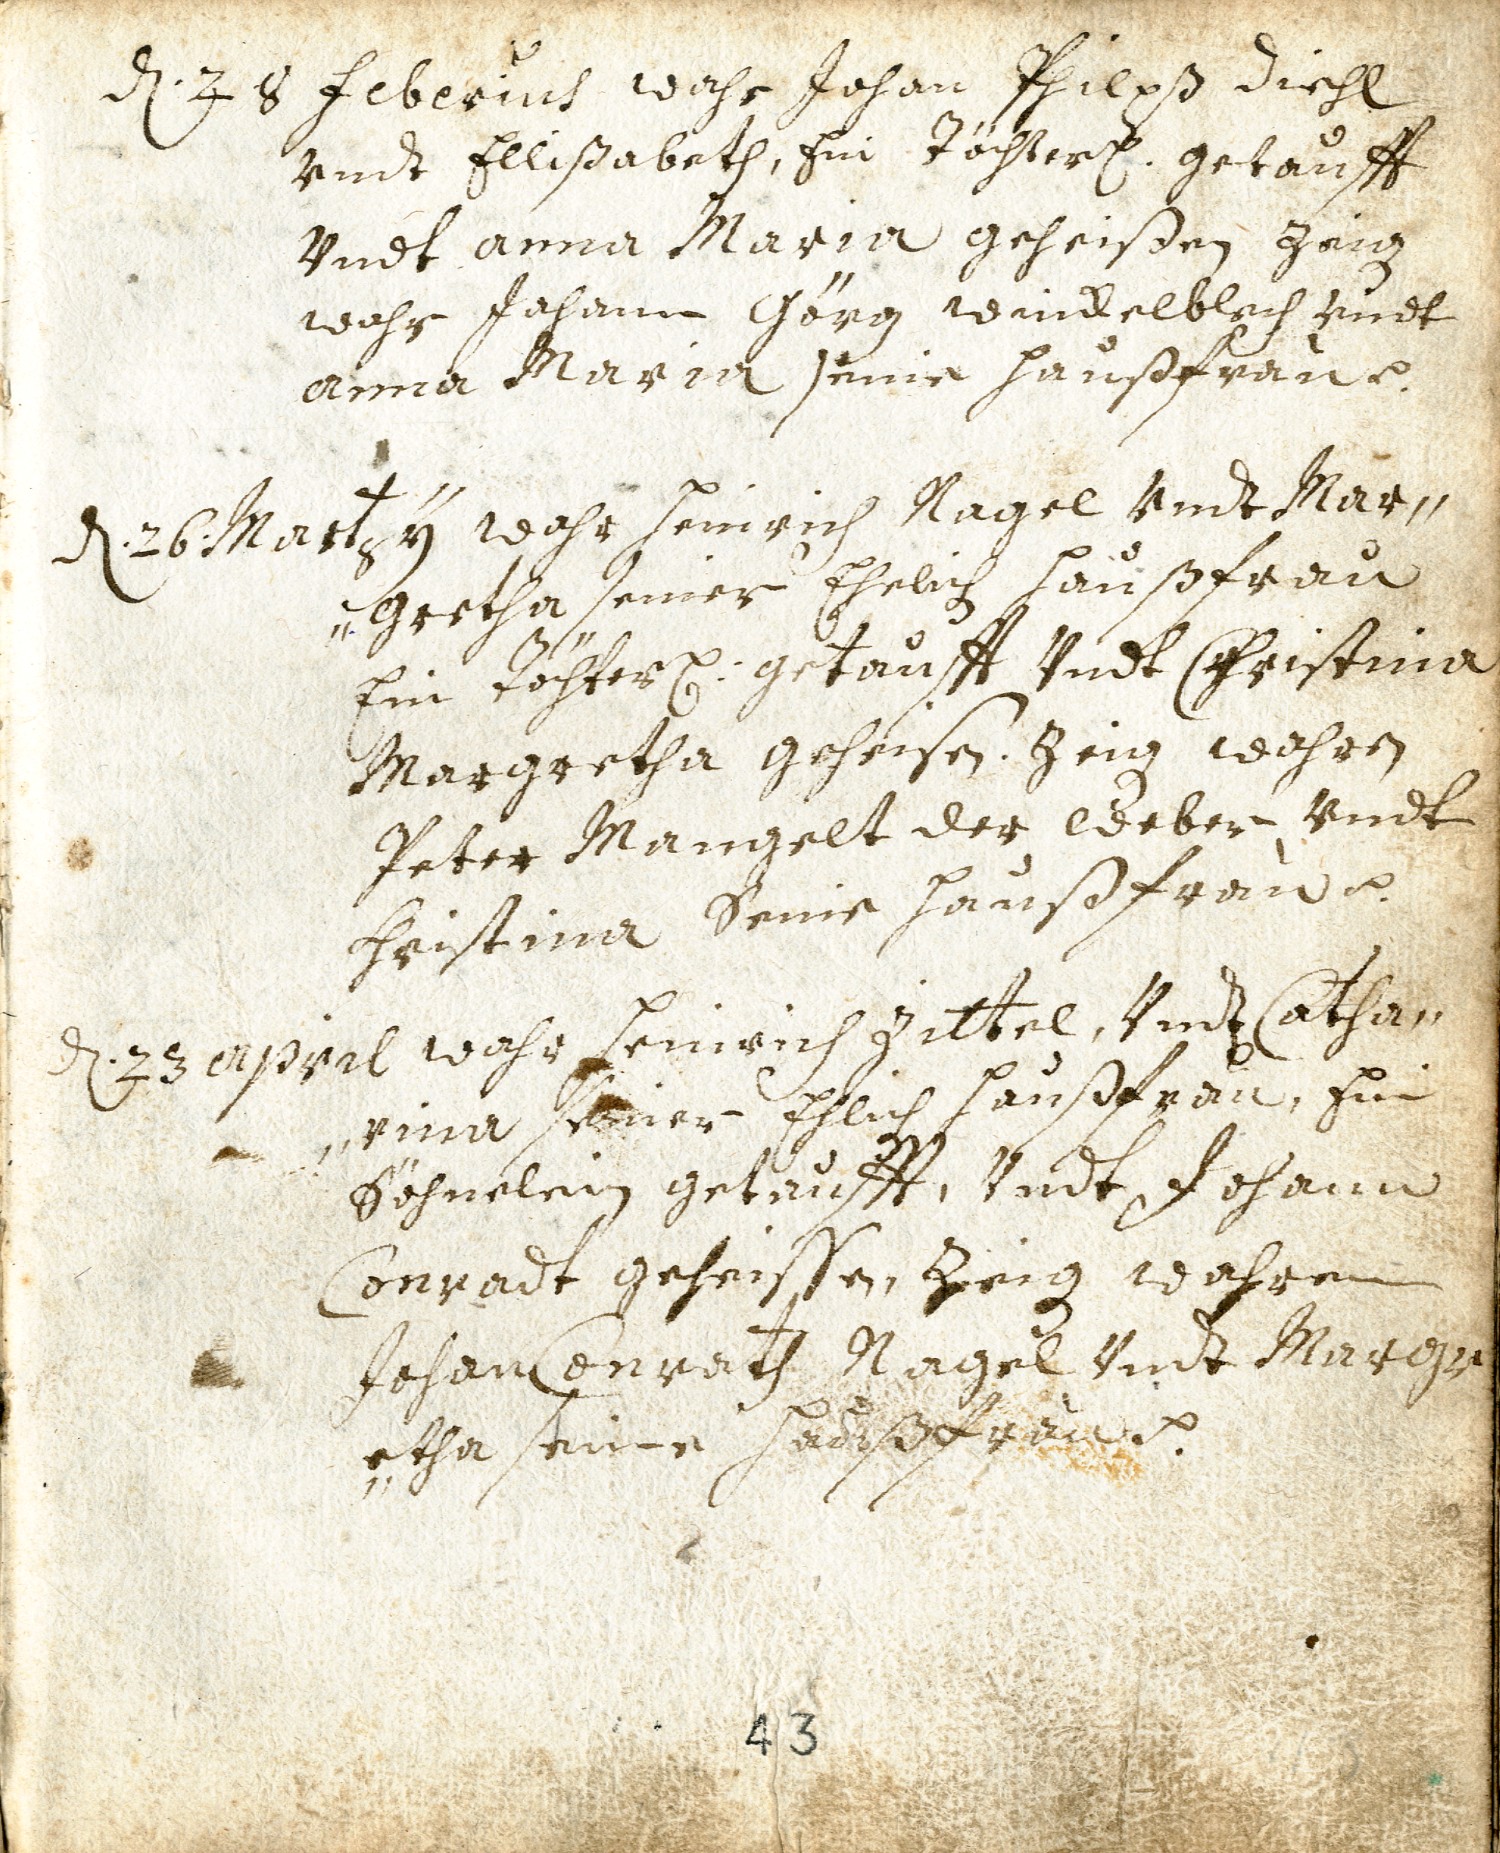 d. 28 feberius wahr Johan Philpß Diehl
Vndt Ellißabeth, Ein Töchterl. getaufft
Vndt anna Maria geheißen Zeig
wahr Johann Görg winckelblech Vndt
anna Maria seine Haußfrau
d. 26. Martzÿ wahr Heinrich Nagel Vndt Mar„
„Gretha seiner Ehelich Haußfrau
Ein Töchterl: getaufft Vndt Christina
Margretha geheisen. Zeig wahren
Peter Mangelt der Weber Vndt
Christina Seine Haußfrau
d. 23 April wahr Heinrich Zittel, Vndt Catha„
„rina seiner Ehlich Haußfrau, Ein
Söhnelein getaufft, Vndt Johann
Conradt geheissen, Zeig wahren
Johan Conrath Nagel Vndt Margr
„etha seine Haußfrau
43